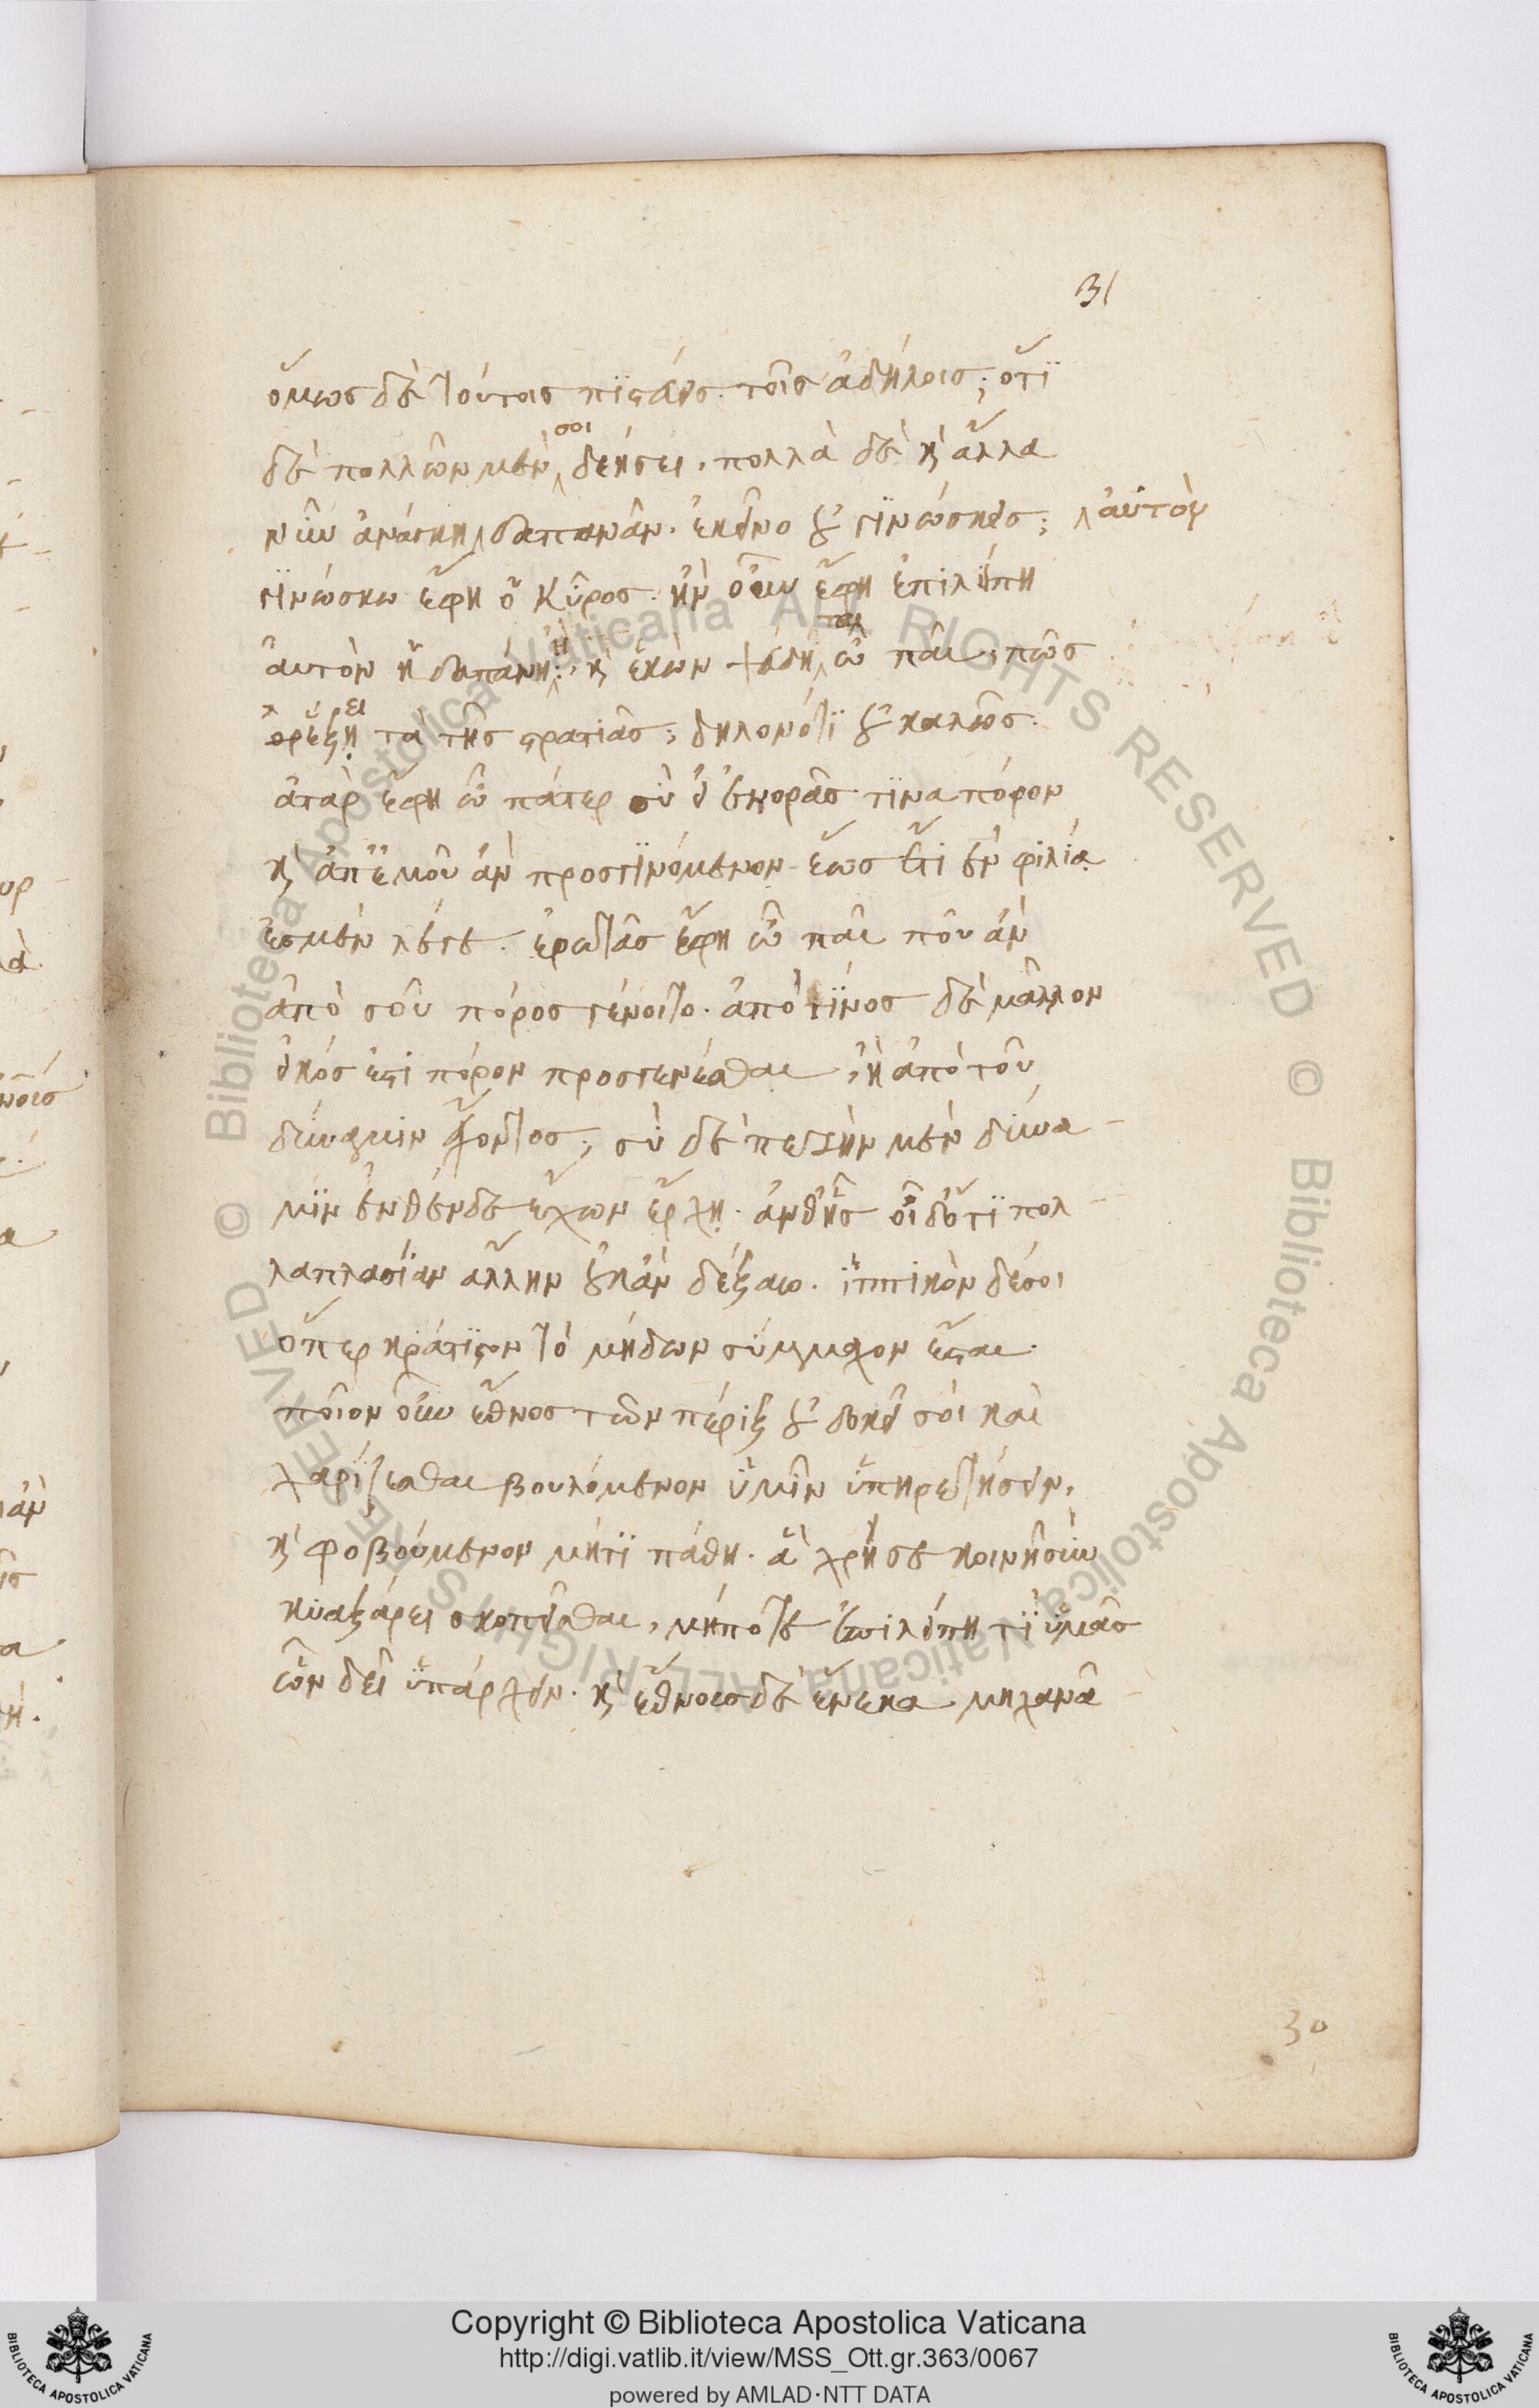 31
ὅμως δὲ τούτοις πιστεύεις τοῖς ἀδήλοις; ὅτι
δὲ πολλῶν μὲν σοι δεήσει, πολλὰ δὲ καὶ ἄλλα
νῦν ἀνάγκη δαπανᾶν. ἐκεῖνο οὐ γινώσκεις; αὐτὸν
γινώσκω ἔφη ὁ Κῦρος. ἢν οὖν ἔφη ἐπιλείπῃ
αὐτὸν ἡ δαπάνη; ἢ καὶ ἑκὼν ψεύδηται ὦ παῖ, πῶς
ὀρέξῃ ει τὰ τῆς στρατιᾶς; δηλονότι οὐ καλῶς.
ἀτὰρ ἔφη ὦ πάτερ σὺ εἰ ἐνορᾷς τινα πόρον
καὶ ἀπ' ἐμοῦ ἂν προσγινόμενον ἕως ἔτι ἐν φιλίᾳ
ἐσμὲν λέγε. ἐρωτᾷς ἔφη ὦ παῖ ποῦ ἂν
ἀπὸ σοῦ πόρος γένοιτο. ἀπὸ τίνος δὲ μᾶλλον
εἰκός ἐστι πόρον προσγενέσθαι, ἢ ἀπὸ τοῦ
δύναμιν ἔχοντος; σὺ δὲ πεζὴν μὲν δύνα-
μιν ἐνθένδε ἔχων ἔρχῃ. ἀνθ' ἧς οἶδ' ὅτι πολ-
λαπλασίαν ἄλλην οὐκ ἂν δέξαιο. ἱππικὸν δέ σοι
ὅπερ κράτιστον τὸ μήδων σύμμαχον ἔσται.
ποῖον οὖν ἔθνος τῶν πέριξ οὐ δοκεῖ σοι καὶ
χαρίζεσθαι βουλόμενον ὑμῖν ὑπηρετήσειν,
καὶ φοβούμενον μή τι πάθῃ. ἃ χρή σε κοινῇ σὺν
κυαξάρει σκοπεῖσθαι, μήποτε ἐπιλείπῃ τι ὑμᾶς
ὧν δεῖ ὑπάρχειν. καὶ ἔθνους δὲ ἕνεκα μηχανᾶ-
30
Copyright © Biblioteca Apostolica Vaticana
http://digi.vatlib.it/view/MSS_Ott.gr.363/0067
powered by AMLAD·NTT DATA